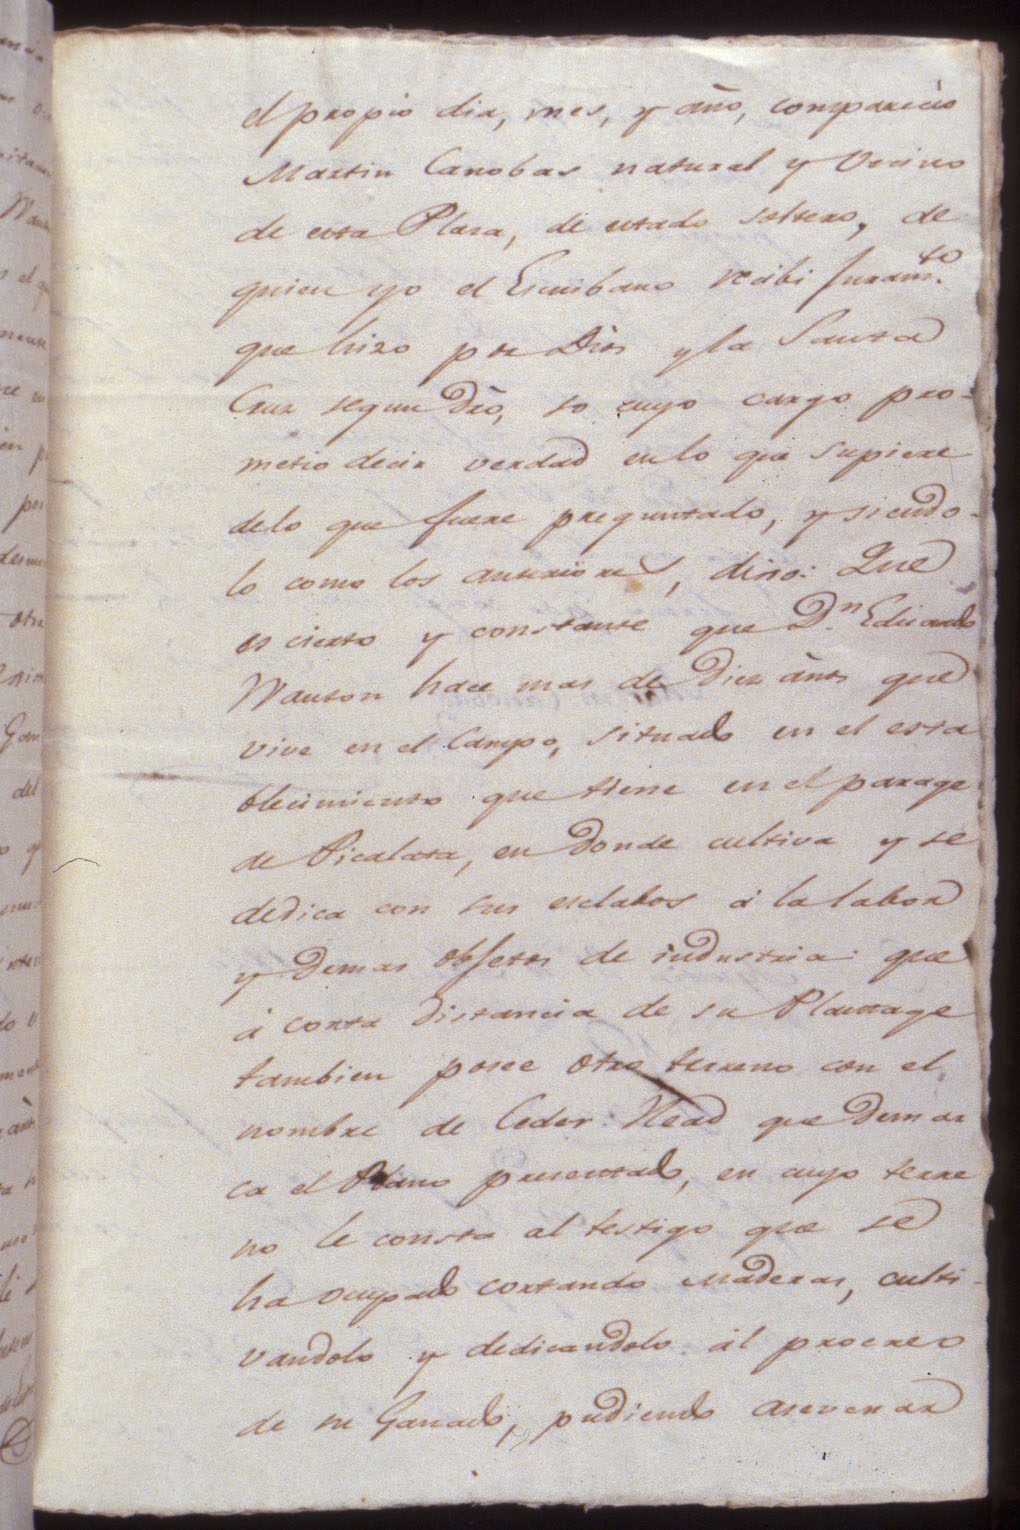 el propio dia, mes, y año, comparecio
Martin Canobas natural y Vecino
de esta Plaza, de estado soltero, de
quien yo el Escribano recibi juram.to
que hizo por Dios y la Santa
Cruz segun Dro, so cuyo cargo pro-
metio decir verdad en lo que supiere
delo que fuere preguntado, y siendo-
lo como los anteriores, dixo: Que
es cierto y constante que D.n Eduardo
Wanton hace mas de Diez años que
vive en el Campo, situado en el esta
blecimiento que tiene en el parage
de Picalata, en Donde cultiva y se
dedica con sus esclabos á la labor
y Demas objetos de industria: que
á corta Distancia de su Plantage
tambien posee otro terreno con el
nombre de Ceder Head que Demar
ca el Plano presentado, en cuyo terre
no le consta al testigo que se
ha ocupado cortando Maderas, culti-
vandolo y dedicandolo al procreo
de su Ganado, pudiendo aseverar